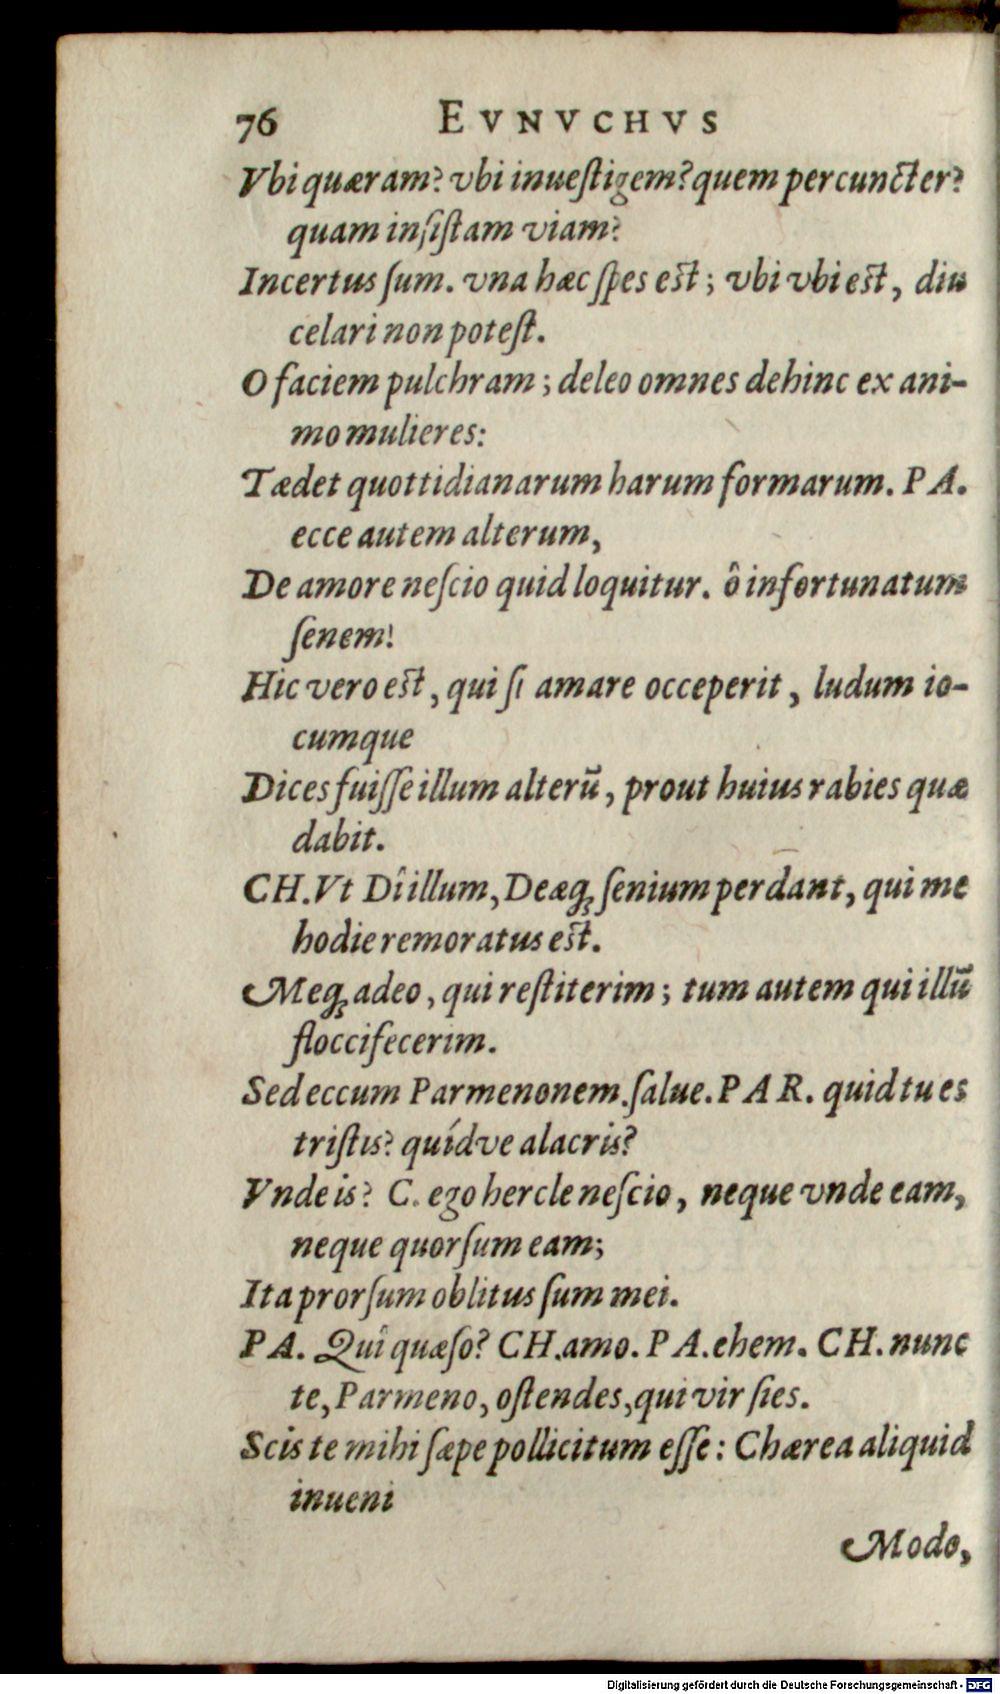 76 EVNVCHVS
Vbi quæram? vbi inuestigem? quem percuncter?
quam insistam viam?
Incertus sum. vna hæc spes est; vbi vbi est, diu
celari non potest.
O faciem pulchram; deleo omnes dehinc ex ani-
mo mulieres:
Tædet quottidianarum harum formarum. PA.
ecce autem alterum,
De amore nescio quid loquitur. ô infortunatum
senem!
Hic vero est, qui si amare occeperit, ludum io-
cumque
Dices fuisse illum alterū, prout huius rabies quæ
dabit.
CH. Vt Dîillum, Deæq; senium perdant, qui me
hodie remoratus est.
Meq; adeo, qui restiterim; tum autem qui illū
floccifecerim.
Sed eccum Parmenonem. salue. PAR. quid tu es
tristis? quídve alacris?
Vnde is? C. ego hercle nescio, neque vnde eam,
neque quorsum eam;
Ita prorsum oblitus sum mei.
PA. Quî quæso? CH. amo. PA. ehem. CH. nunc
te, Parmeno, ostendes, qui vir sies.
Scis te mihi sæpe pollicitum esse: Chærea aliquid
inueni
Modo,
Digitalisierung gefördert durch die Deutsche Forschungsgemeinschaft - DFG